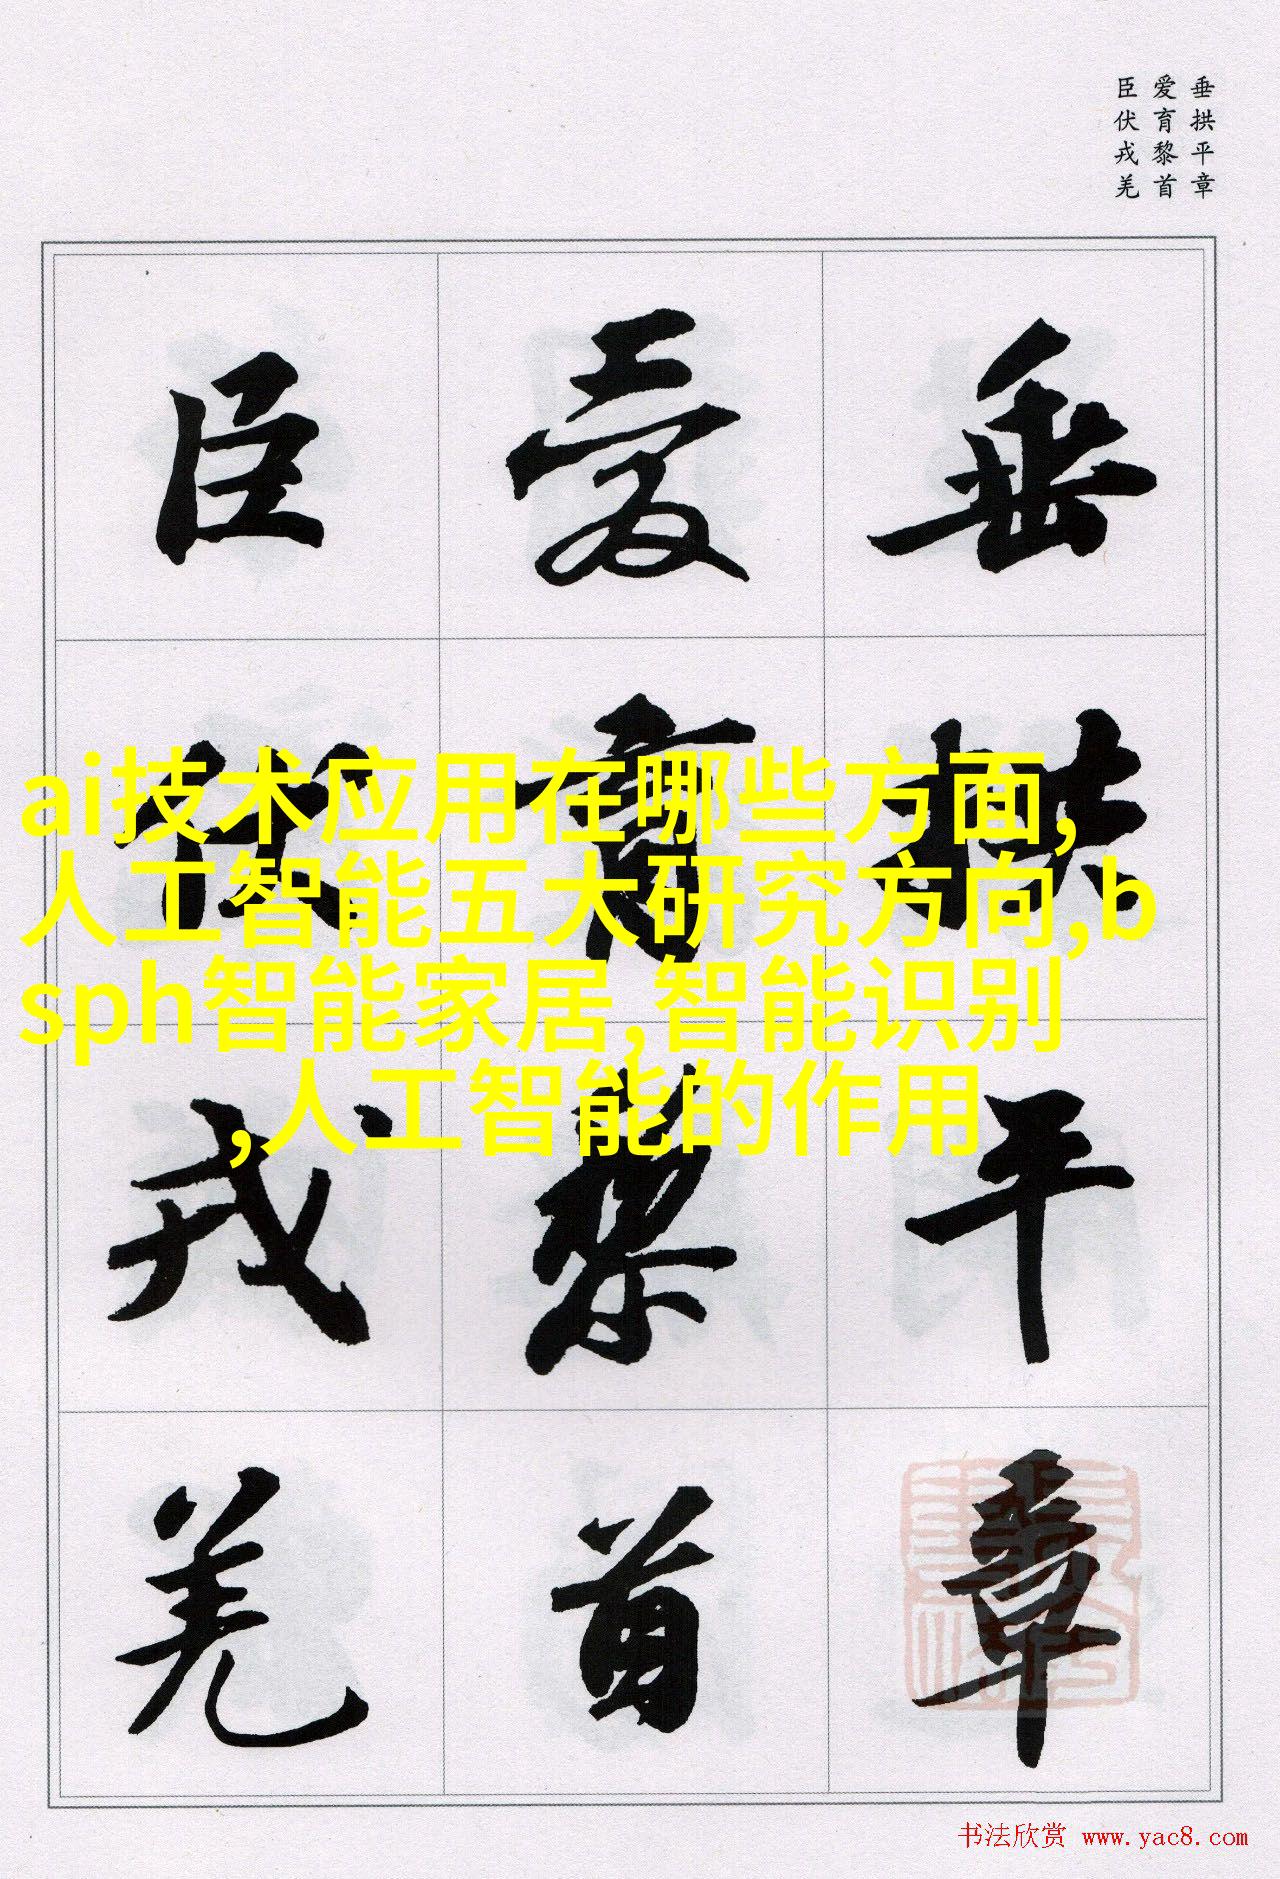 垂拱平章
爱育黎首
臣伏戎羌
垂拱平章
爱育黎首
臣伏戎羌
ai技术应用在哪些方面,
人工智能五大研究方向,b
sph智能家居,智能识别
,人工智能的作用
书法欣赏 www.yac8.com